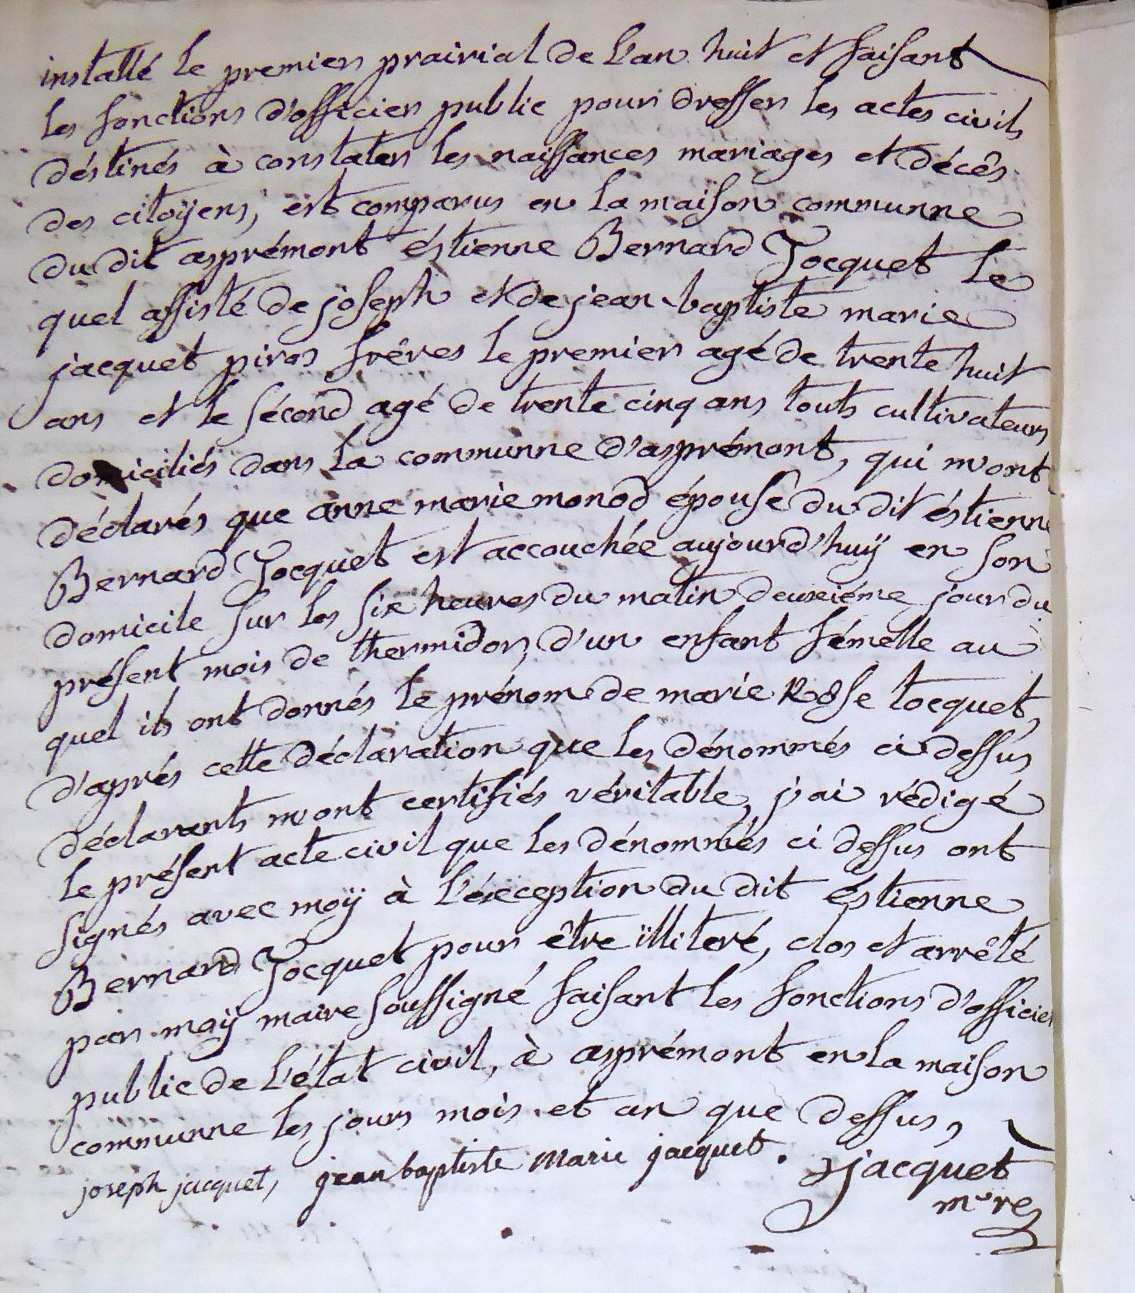 installé le premier prairial de l'an huit et faisant
les fonctions d'officier public pour dresser les actes civils
déstinés à constater les naissances mariages et décês
des citoÿens, est comparus en la maison communne
du dit asprémont éstienne Bernard Tocquet le
quel assisté de joseph et de jean baptiste marie
jacquet piros frêres le premier agé de trente huit
ans et le sécond agé de trente cinq ans touts cultivateurs
domiciliés dans la communne d'asprémont, qui m'ont
déclarés que anne marie monod épouse du dit éstienne
Bernard Tocquet est accouchée aujourd'huÿ en son
domicile sur les six heures du matin deuxiéme jour du
présent mois de thermidor, d'un enfant fémelle au
quel ils ont donnés le prénom de marie Rose tocquet,
d'aprés cette déclaration que les dénommés ci dessus
déclarants m'ont certifiés véritable, j'ai rédigé
le présent acte civil que les dénommés ci dessus ont
signés avec moÿ à l'éxception du dit Éstienne
Bernard Tocquet pour être ïlliteré, clos et arrêté
par moÿ maire soussigné faisant les fonctions d'officier
public de l'état civil, à asprémont en la maison
communne les jours mois et an que dessus,
joseph jacquet, jean baptiste marie jacquet. jacquet
m.re